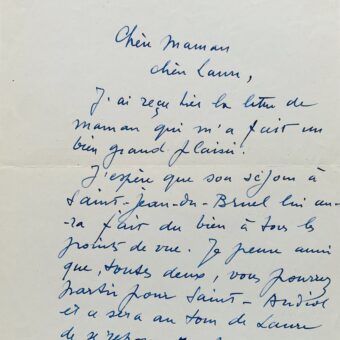 Chère Maman
chère Laure,
J'ai reçu hier la lettre de
maman qui m'a fait un
bien grand plaisir.
J'espère que son séjour à
Saint-Jean-du-Bruel lui au-
ra fait du bien à tous les
points de vue. Je pense aussi
que, toutes deux, vous pourrez
partir pour Saint-Andiol
et ce sera au tour de Laure
de se